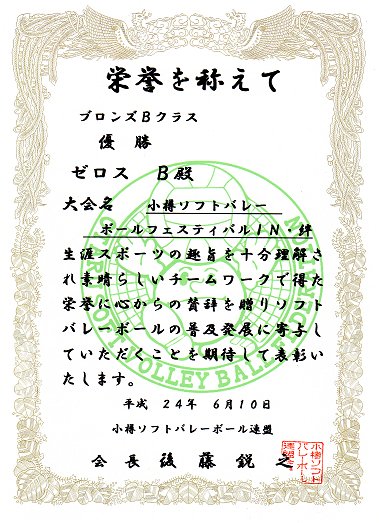 栄誉を称えて
ブロンズBクラス
優勝
ゼロス B殿
大会名 小樽ソフトバレー
ボールフェスティバルIN・絆
生涯スポーツの趣旨を十分理解さ
れ素晴らしいチームワークで得た
栄誉に心からの賛辞を贈りソフト
バレーボールの普及発展に寄与し
ていただくことを期待して表彰い
たします。
平成 24年 6月10日
小樽ソフトバレーボール連盟
会長 後藤鋭之
小樽ソフト
バレーボール